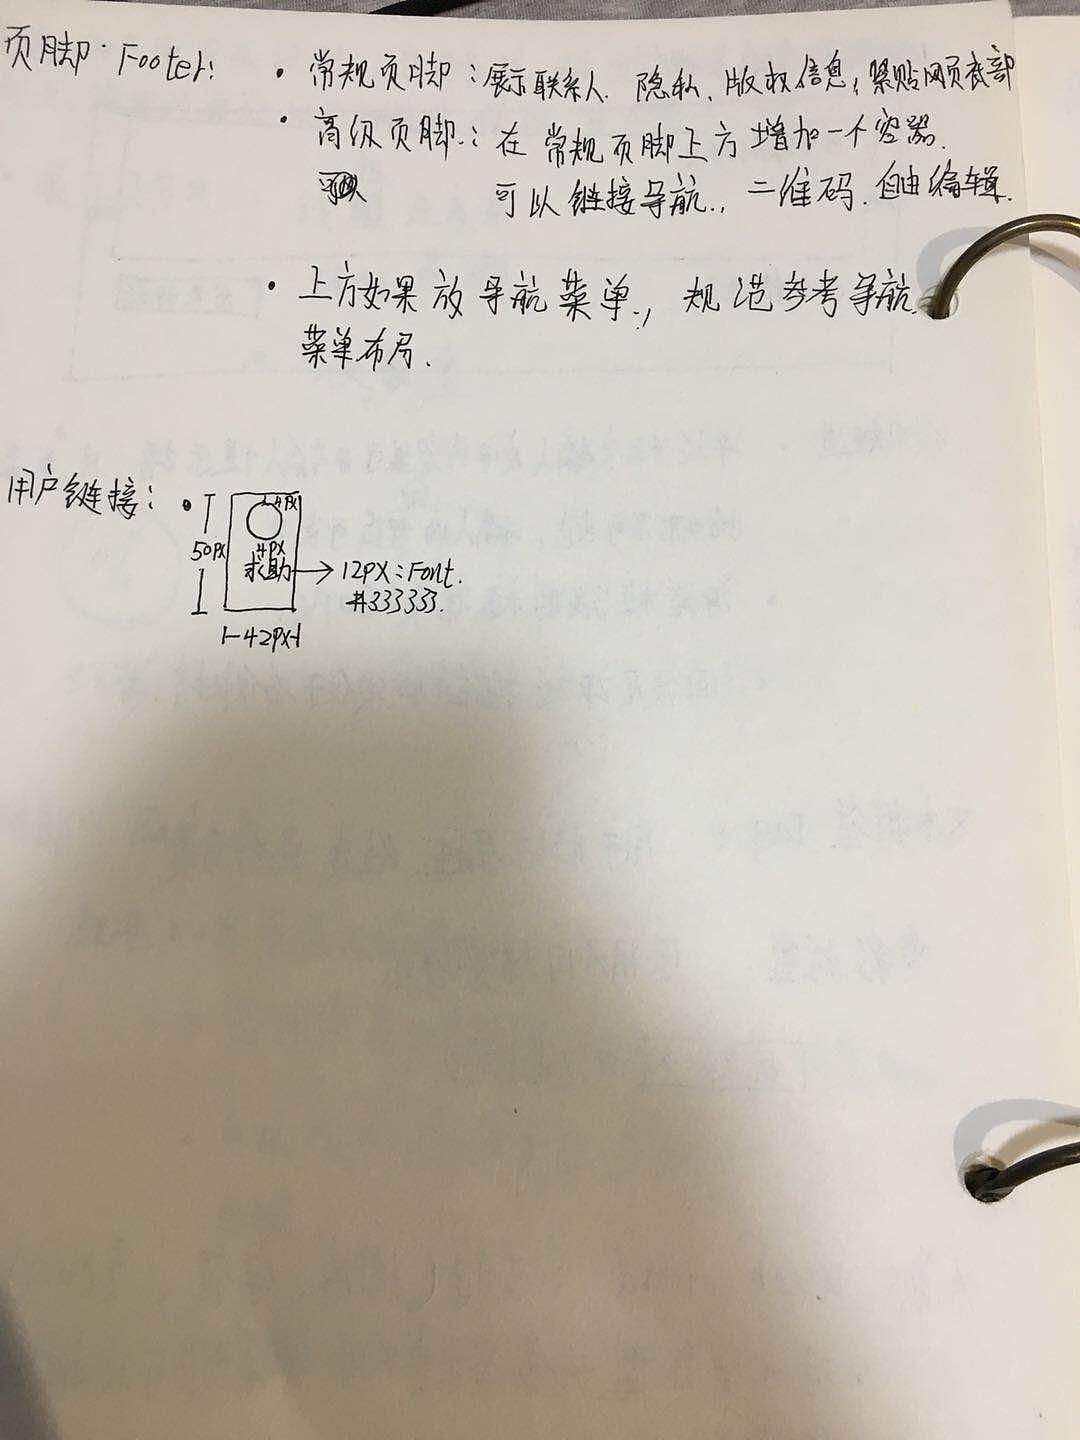 页脚· Footer:
· 常规页脚：展示联系人、隐私、版权信息，紧贴网页底部
· 高级页脚：在常规页脚上方增加一个容器.
可以链接导航.，二维码.自由编辑.
· 上方如果放导航菜单.，规范参考导航
菜单布局.
用户链接：
4PX
50PX
4PX
求助 → 12PX:Font.
#333333.
42PX